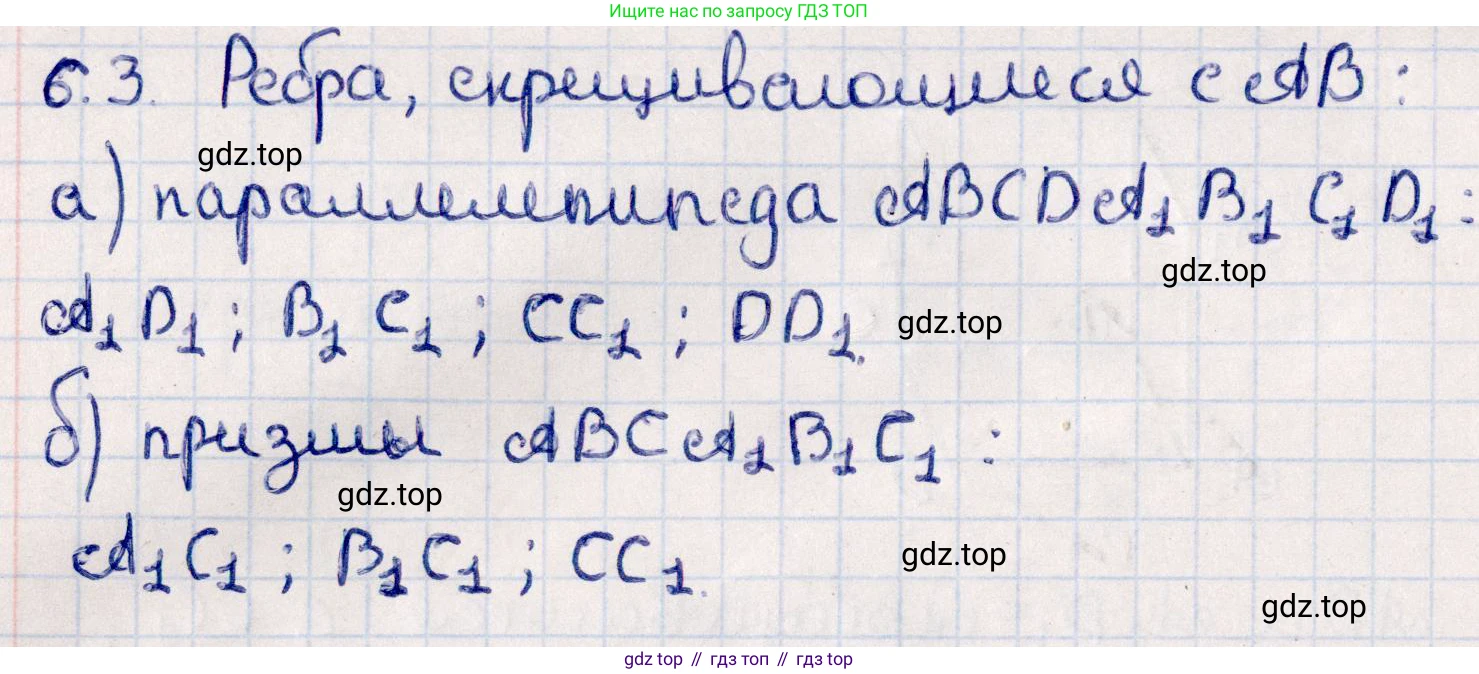 Ищите нас по запросу ГДЗ ТОП
6.3. Ребра, скрещивающиеся с AB:
gdz.top
а) параллелепипеда ABCDA₁B₁C₁D₁:
gdz.top
A₁D₁; B₁C₁; CC₁; DD₁.
gdz.top
б) призмы ABCA₁B₁C₁:
gdz.top
A₁C₁; B₁C₁; CC₁.
gdz.top
gdz.top
gdz top // гдз топ // гдз top